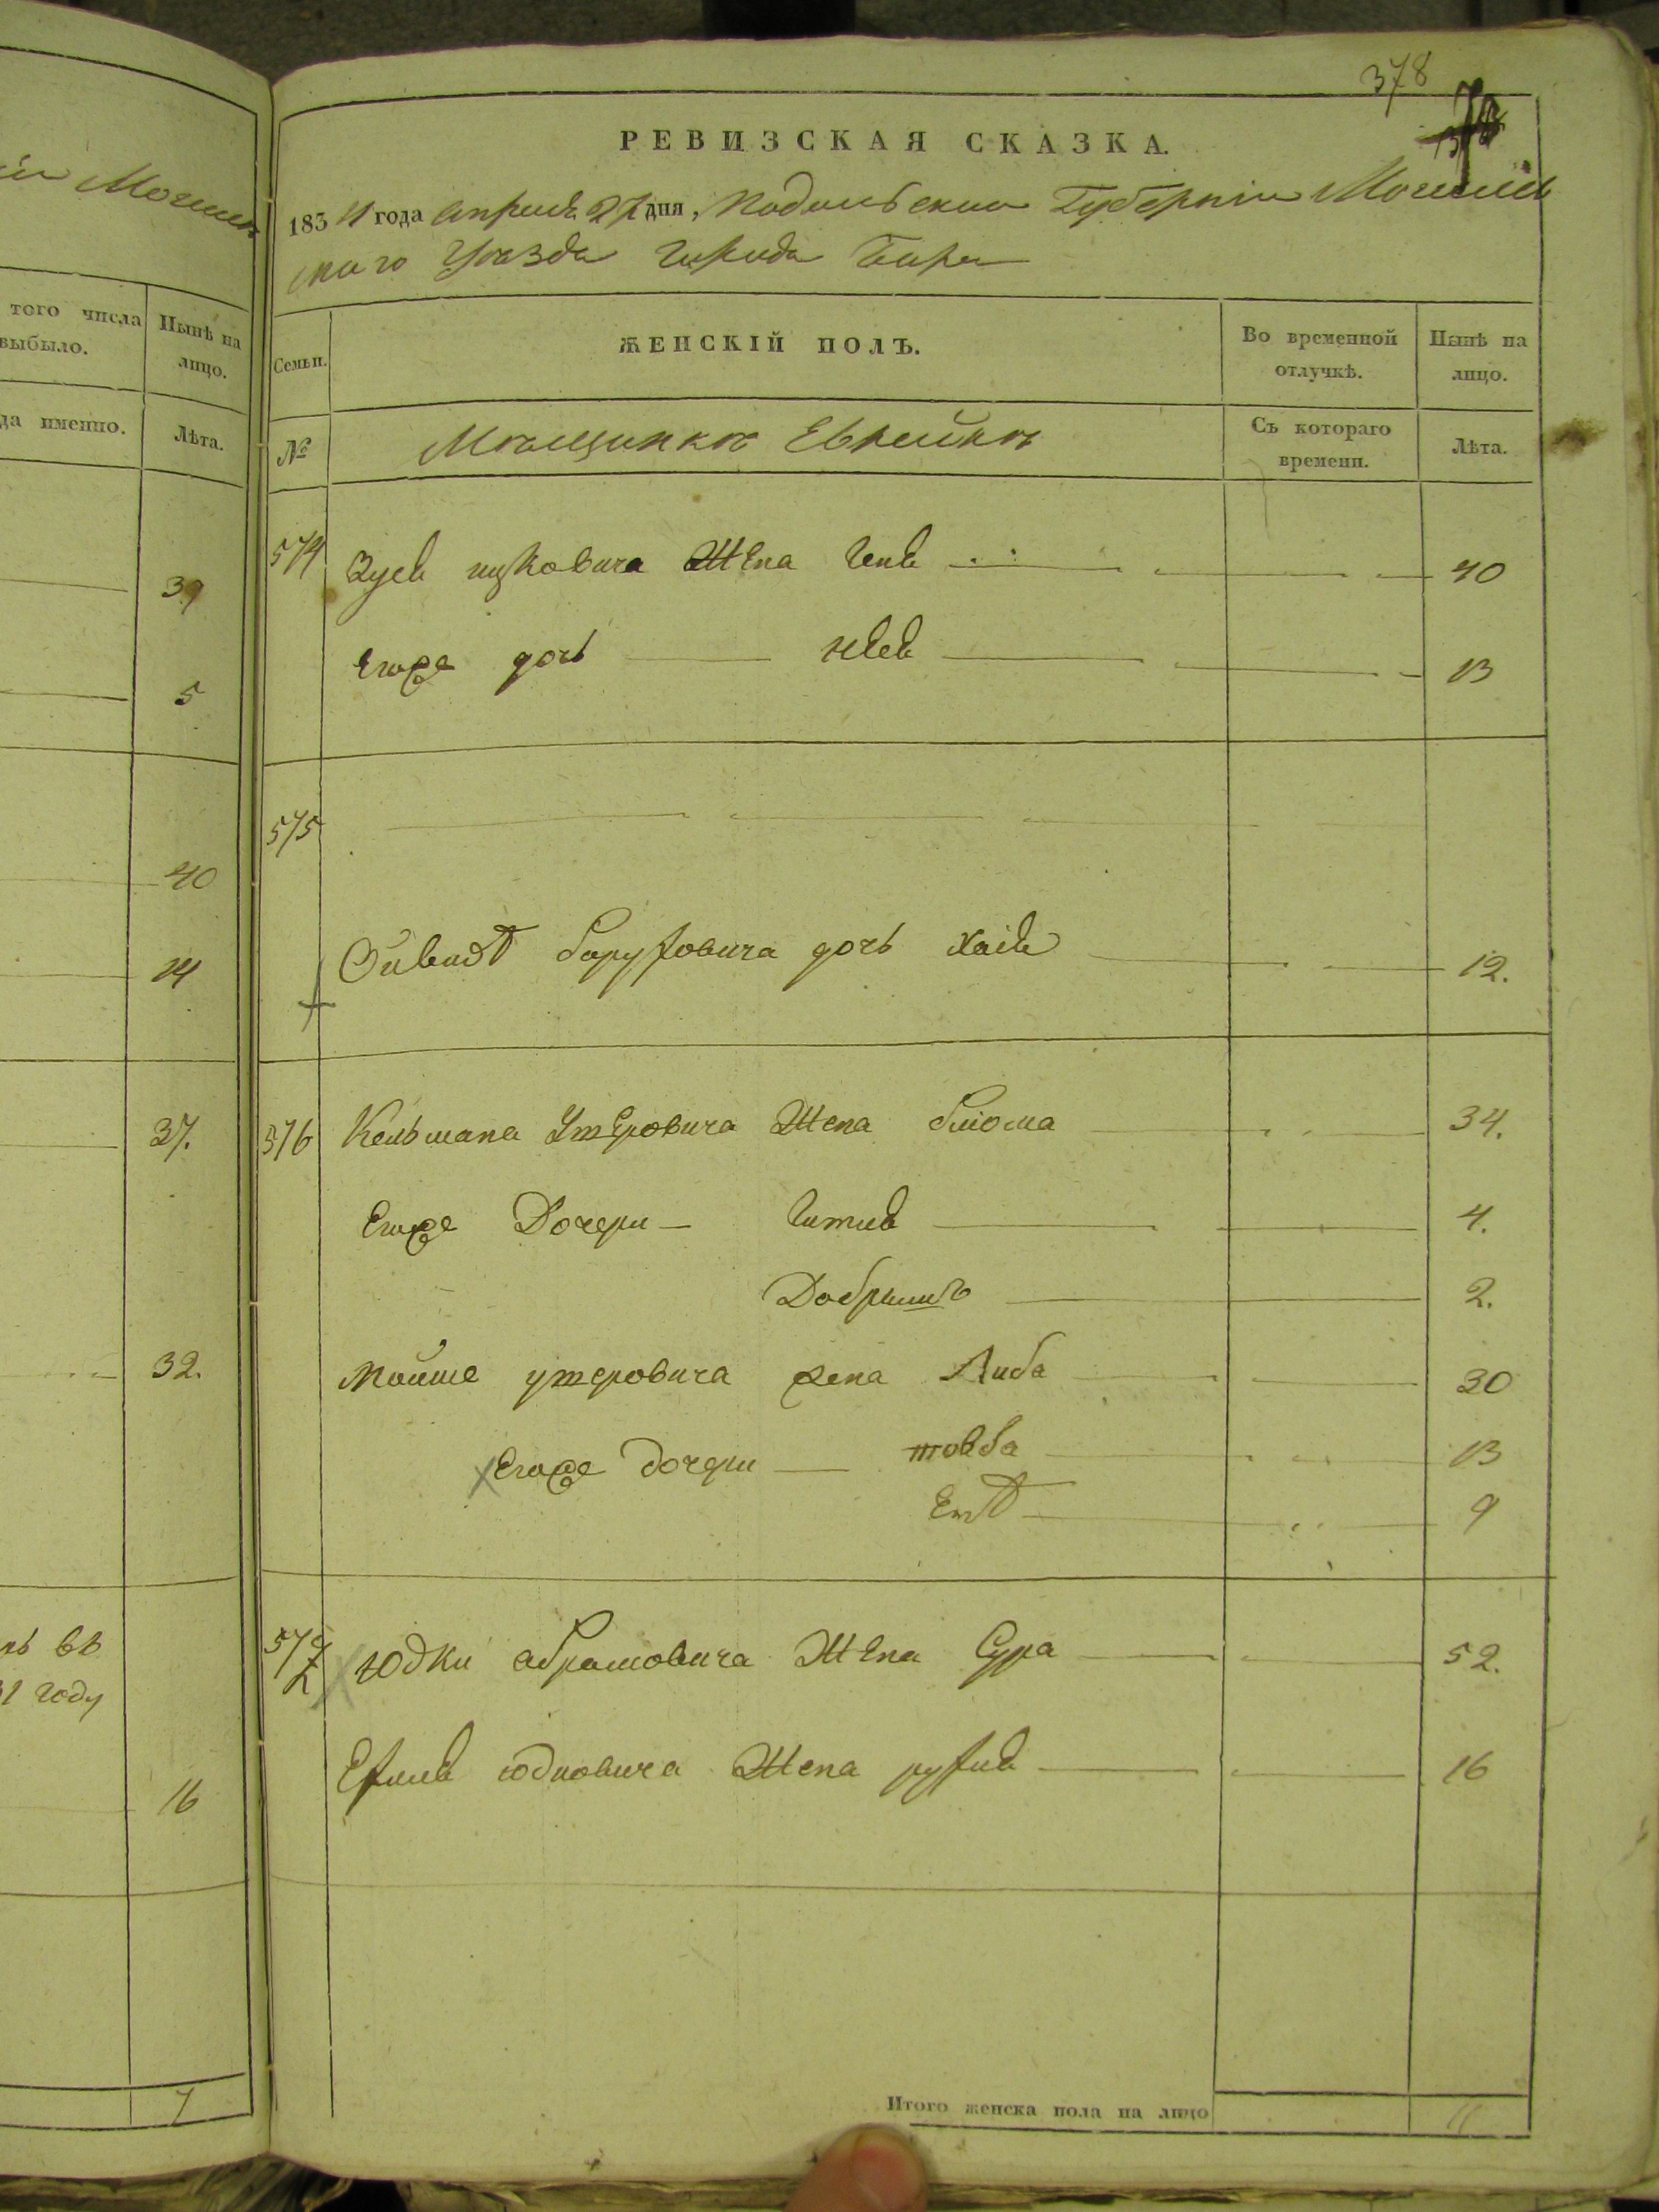 378
РЕВИЗСКАЯ СКАЗКА.
1834 года апреля 27 дня, Подольской Губернiи Могилев
скаго Уѣзда города Бара
того числа выбыло.
Нынѣ на лицо.
да именно.
Лѣта.
39
5
40
14
37.
32.
въ
году
16
7
Семьи.
ЖЕНСКIЙ ПОЛЪ.
Во временной отлучкѣ.
Нынѣ на лицо.
№
Мѣщанки Еврейки
Съ котораго времени.
Лѣта.
574 Зуся Ицковича Жена Геня 40
Егоже дочь 13
575
Баруховича дочь Хая 12.
576 Кельмана Утеровича Жена Блюма 34.
Егоже Дочери Гитля 4.
Добрышъ 2.
Мойше утеровича жена Либа 30
Егоже дочери товба 13
Ента 9
577 Юдки абрамовича Жена Сура 52.
Ехиля юдковича Жена рухля 16
Итого женска пола на лицо 11